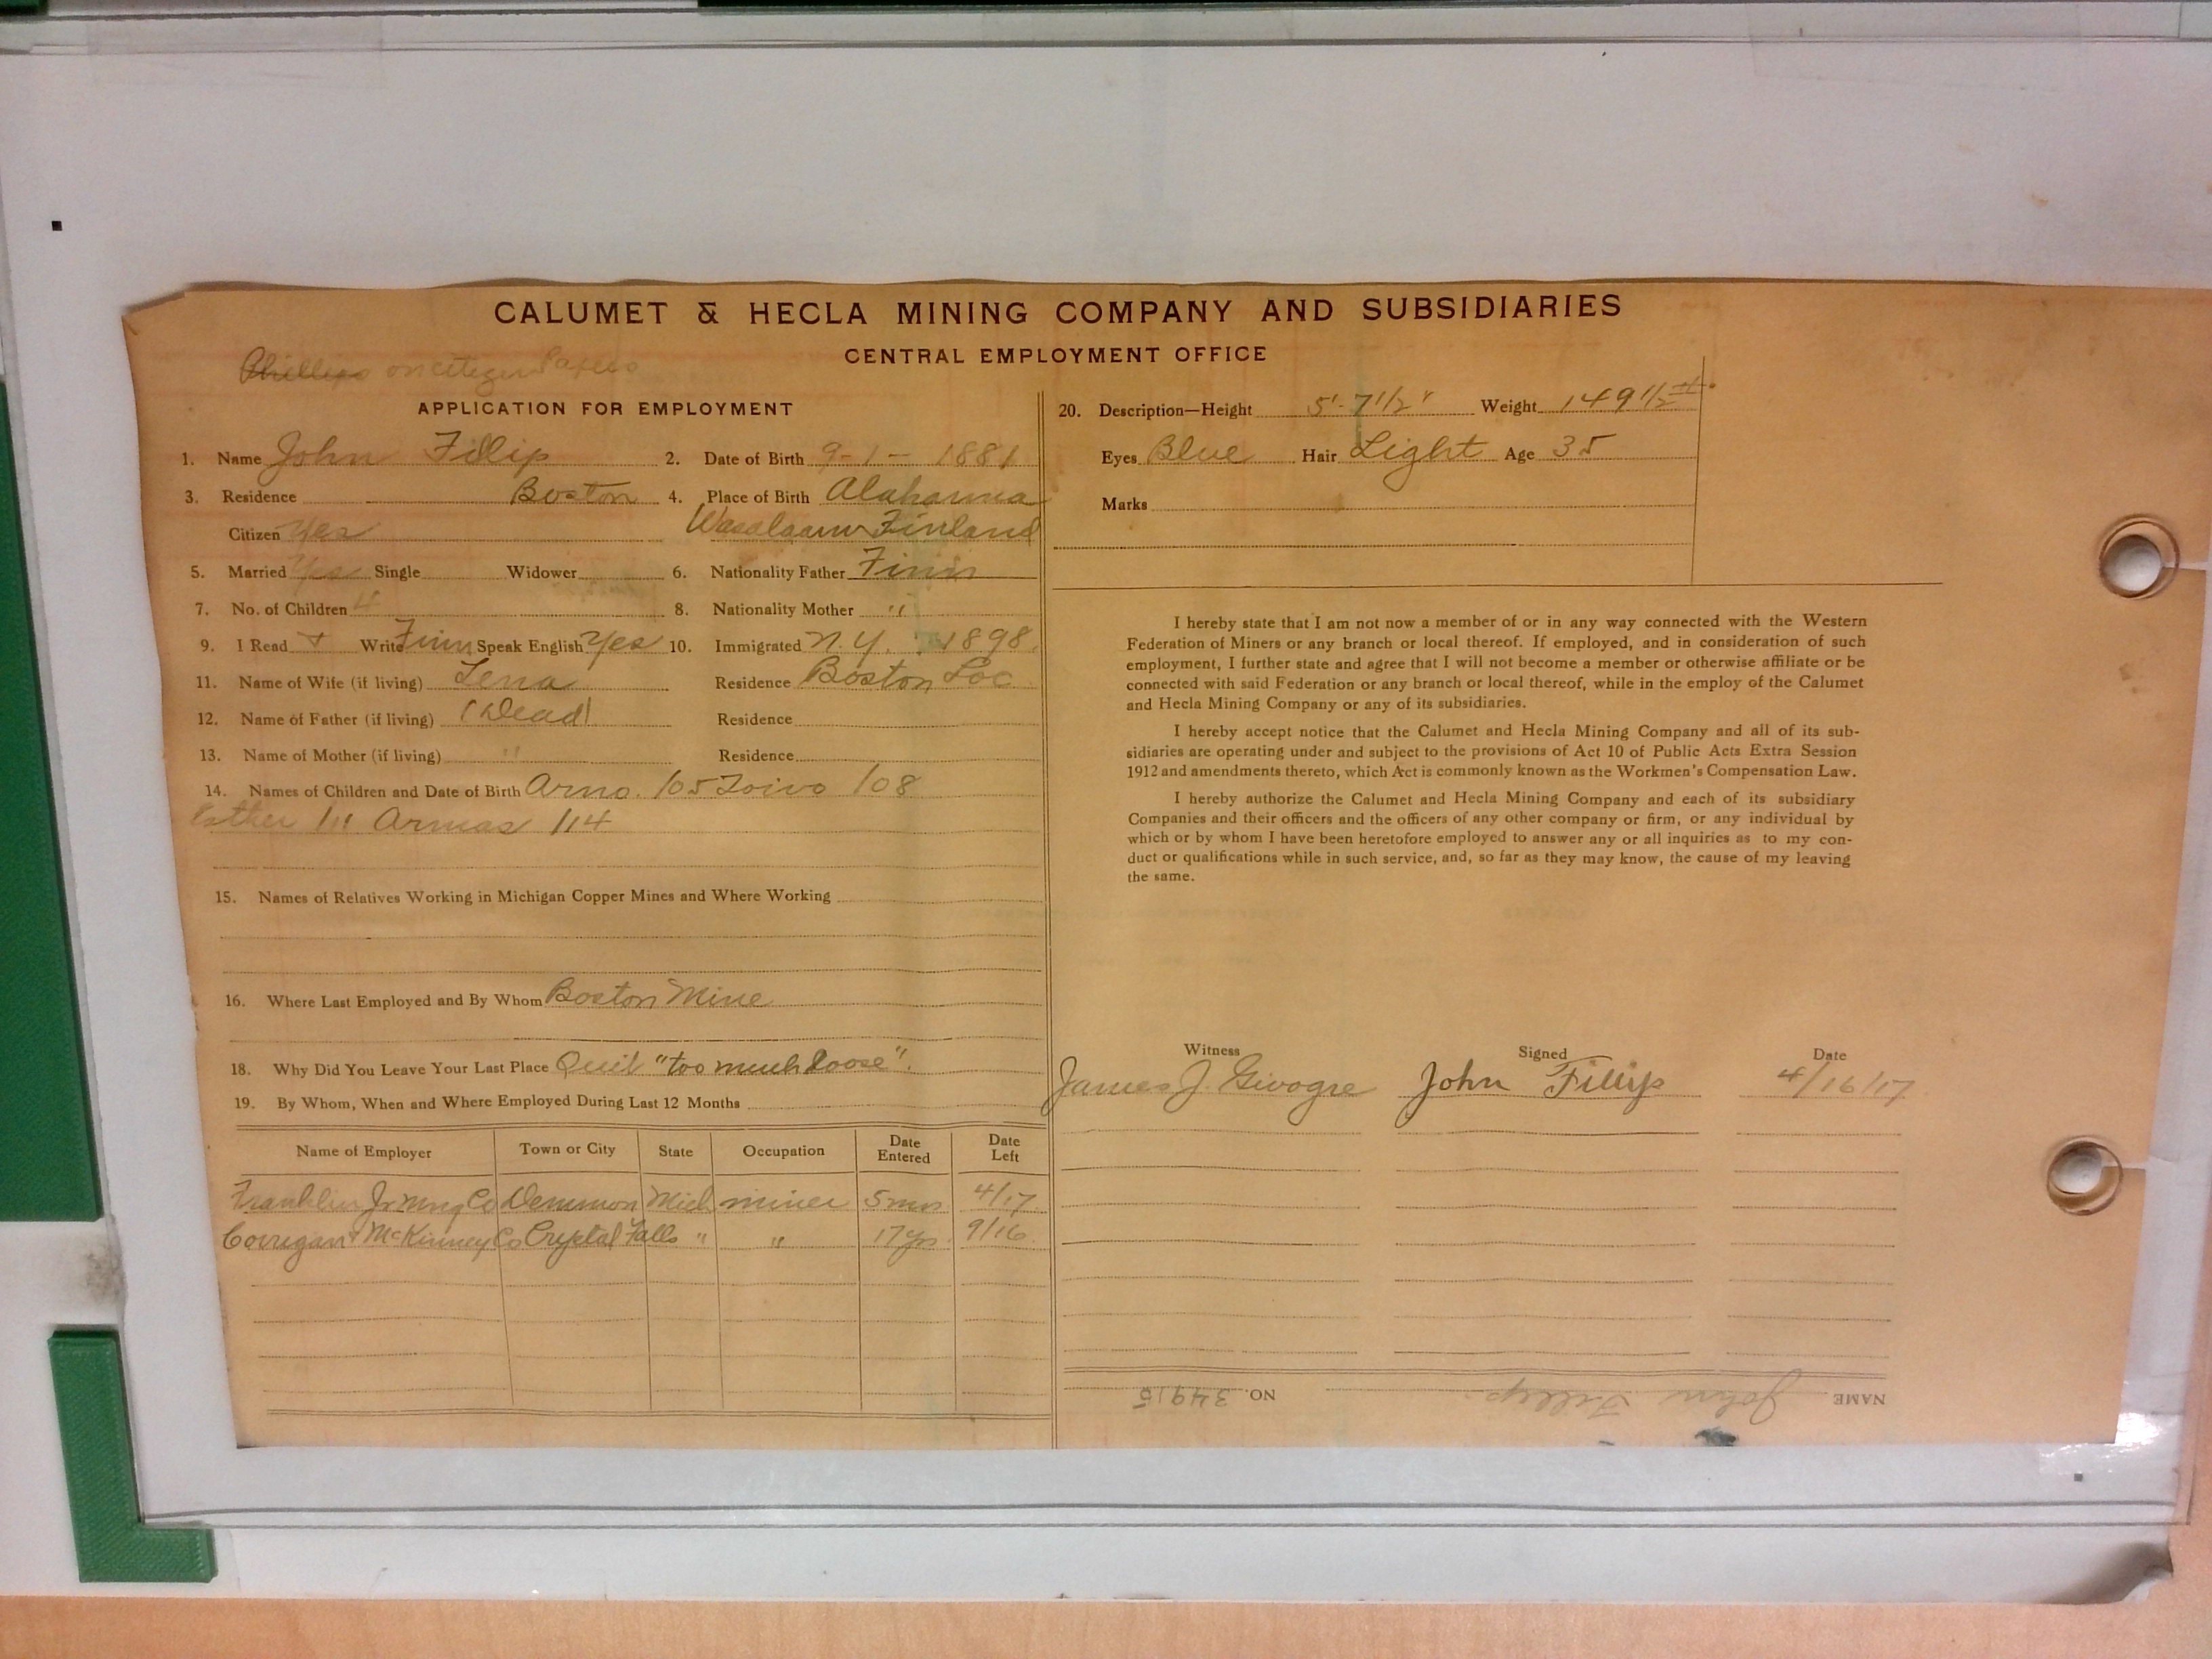 CALUMET & HECLA MINING COMPANY AND SUBSIDIARIES
CENTRAL EMPLOYMENT OFFICE
Phillips on citizen Papers
APPLICATION FOR EMPLOYMENT
1. Name John Fillip 2. Date of Birth 9-1-1881
3. Residence Boston 4. Place of Birth Alaharma
Citizen Yes Wasalaani Finland
5. Married Yes Single Widower 6. Nationality Father Finn
7. No. of Children 4 8. Nationality Mother "
9. I Read + Write Finn Speak English Yes 10. Immigrated N.Y. 1898
11. Name of Wife (if living) Lena Residence Boston Loc
12. Name of Father (if living) (Dead) Residence
13. Name of Mother (if living) " Residence
14. Names of Children and Date of Birth Arno. /05 Toivo /08
Esther /11 Armas /14
15. Names of Relatives Working in Michigan Copper Mines and Where Working
16. Where Last Employed and By Whom Boston Mine
18. Why Did You Leave Your Last Place Quit "too much loose".
19. By Whom, When and Where Employed During Last 12 Months
Name of Employer Town or City State Occupation Date Entered Date Left
Franklin Jr Mng Co Demmon Mich miner 5 mos 4/17
Corrigan & McKinney Co Crystal Falls " " 17 yrs 9/16
20. Description—Height 5'-7 1/2" Weight 149 1/2 #
Eyes Blue Hair Light Age 35
Marks
I hereby state that I am not now a member of or in any way connected with the Western
Federation of Miners or any branch or local thereof. If employed, and in consideration of such
employment, I further state and agree that I will not become a member or otherwise affiliate or be
connected with said Federation or any branch or local thereof, while in the employ of the Calumet
and Hecla Mining Company or any of its subsidiaries.
I hereby accept notice that the Calumet and Hecla Mining Company and all of its sub-
sidiaries are operating under and subject to the provisions of Act 10 of Public Acts Extra Session
1912 and amendments thereto, which Act is commonly known as the Workmen's Compensation Law.
I hereby authorize the Calumet and Hecla Mining Company and each of its subsidiary
Companies and their officers and the officers of any other company or firm, or any individual by
which or by whom I have been heretofore employed to answer any or all inquiries as to my con-
duct or qualifications while in such service, and, so far as they may know, the cause of my leaving
the same.
Witness Signed Date
James J. Givogre John Fillip 4/16/17
NAME John Fillip NO. 34915